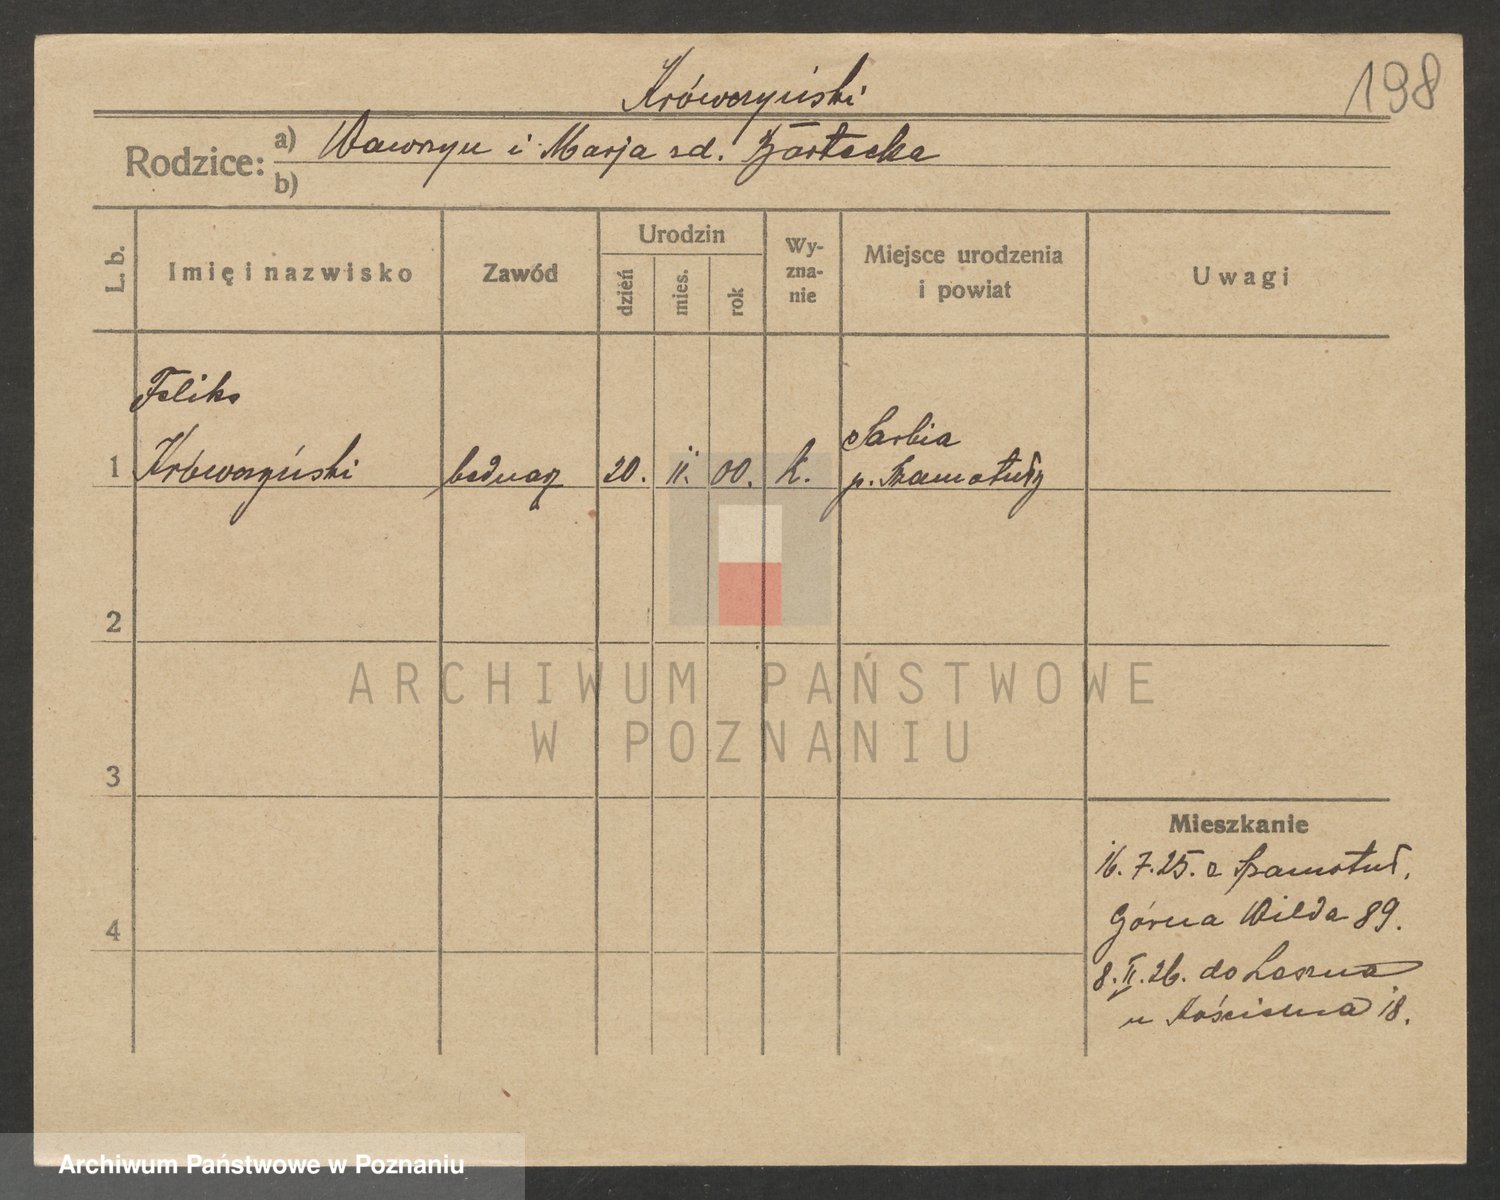 198
Krówczyński
Rodzice: a) Wawrzyn i Marja zd. Żółtecka
b)
L. b.
Imię i nazwisko
Zawód
Urodzin
dzień
mies.
rok
Wy-
zna-
nie
Miejsce urodzenia
i powiat
Uwagi
Feliks
1 Krówczyński bednarz 20. II. 00. k. Sarbia
p. Szamotuły
2
3
4
Mieszkanie
16. 7. 25. z Szamotuł.
Górna Wilda 89.
8. II. 26. do Leszna
u Kościelna 18.
ARCHIWUM PAŃSTWOWE
W POZNANIU
Archiwum Państwowe w Poznaniu